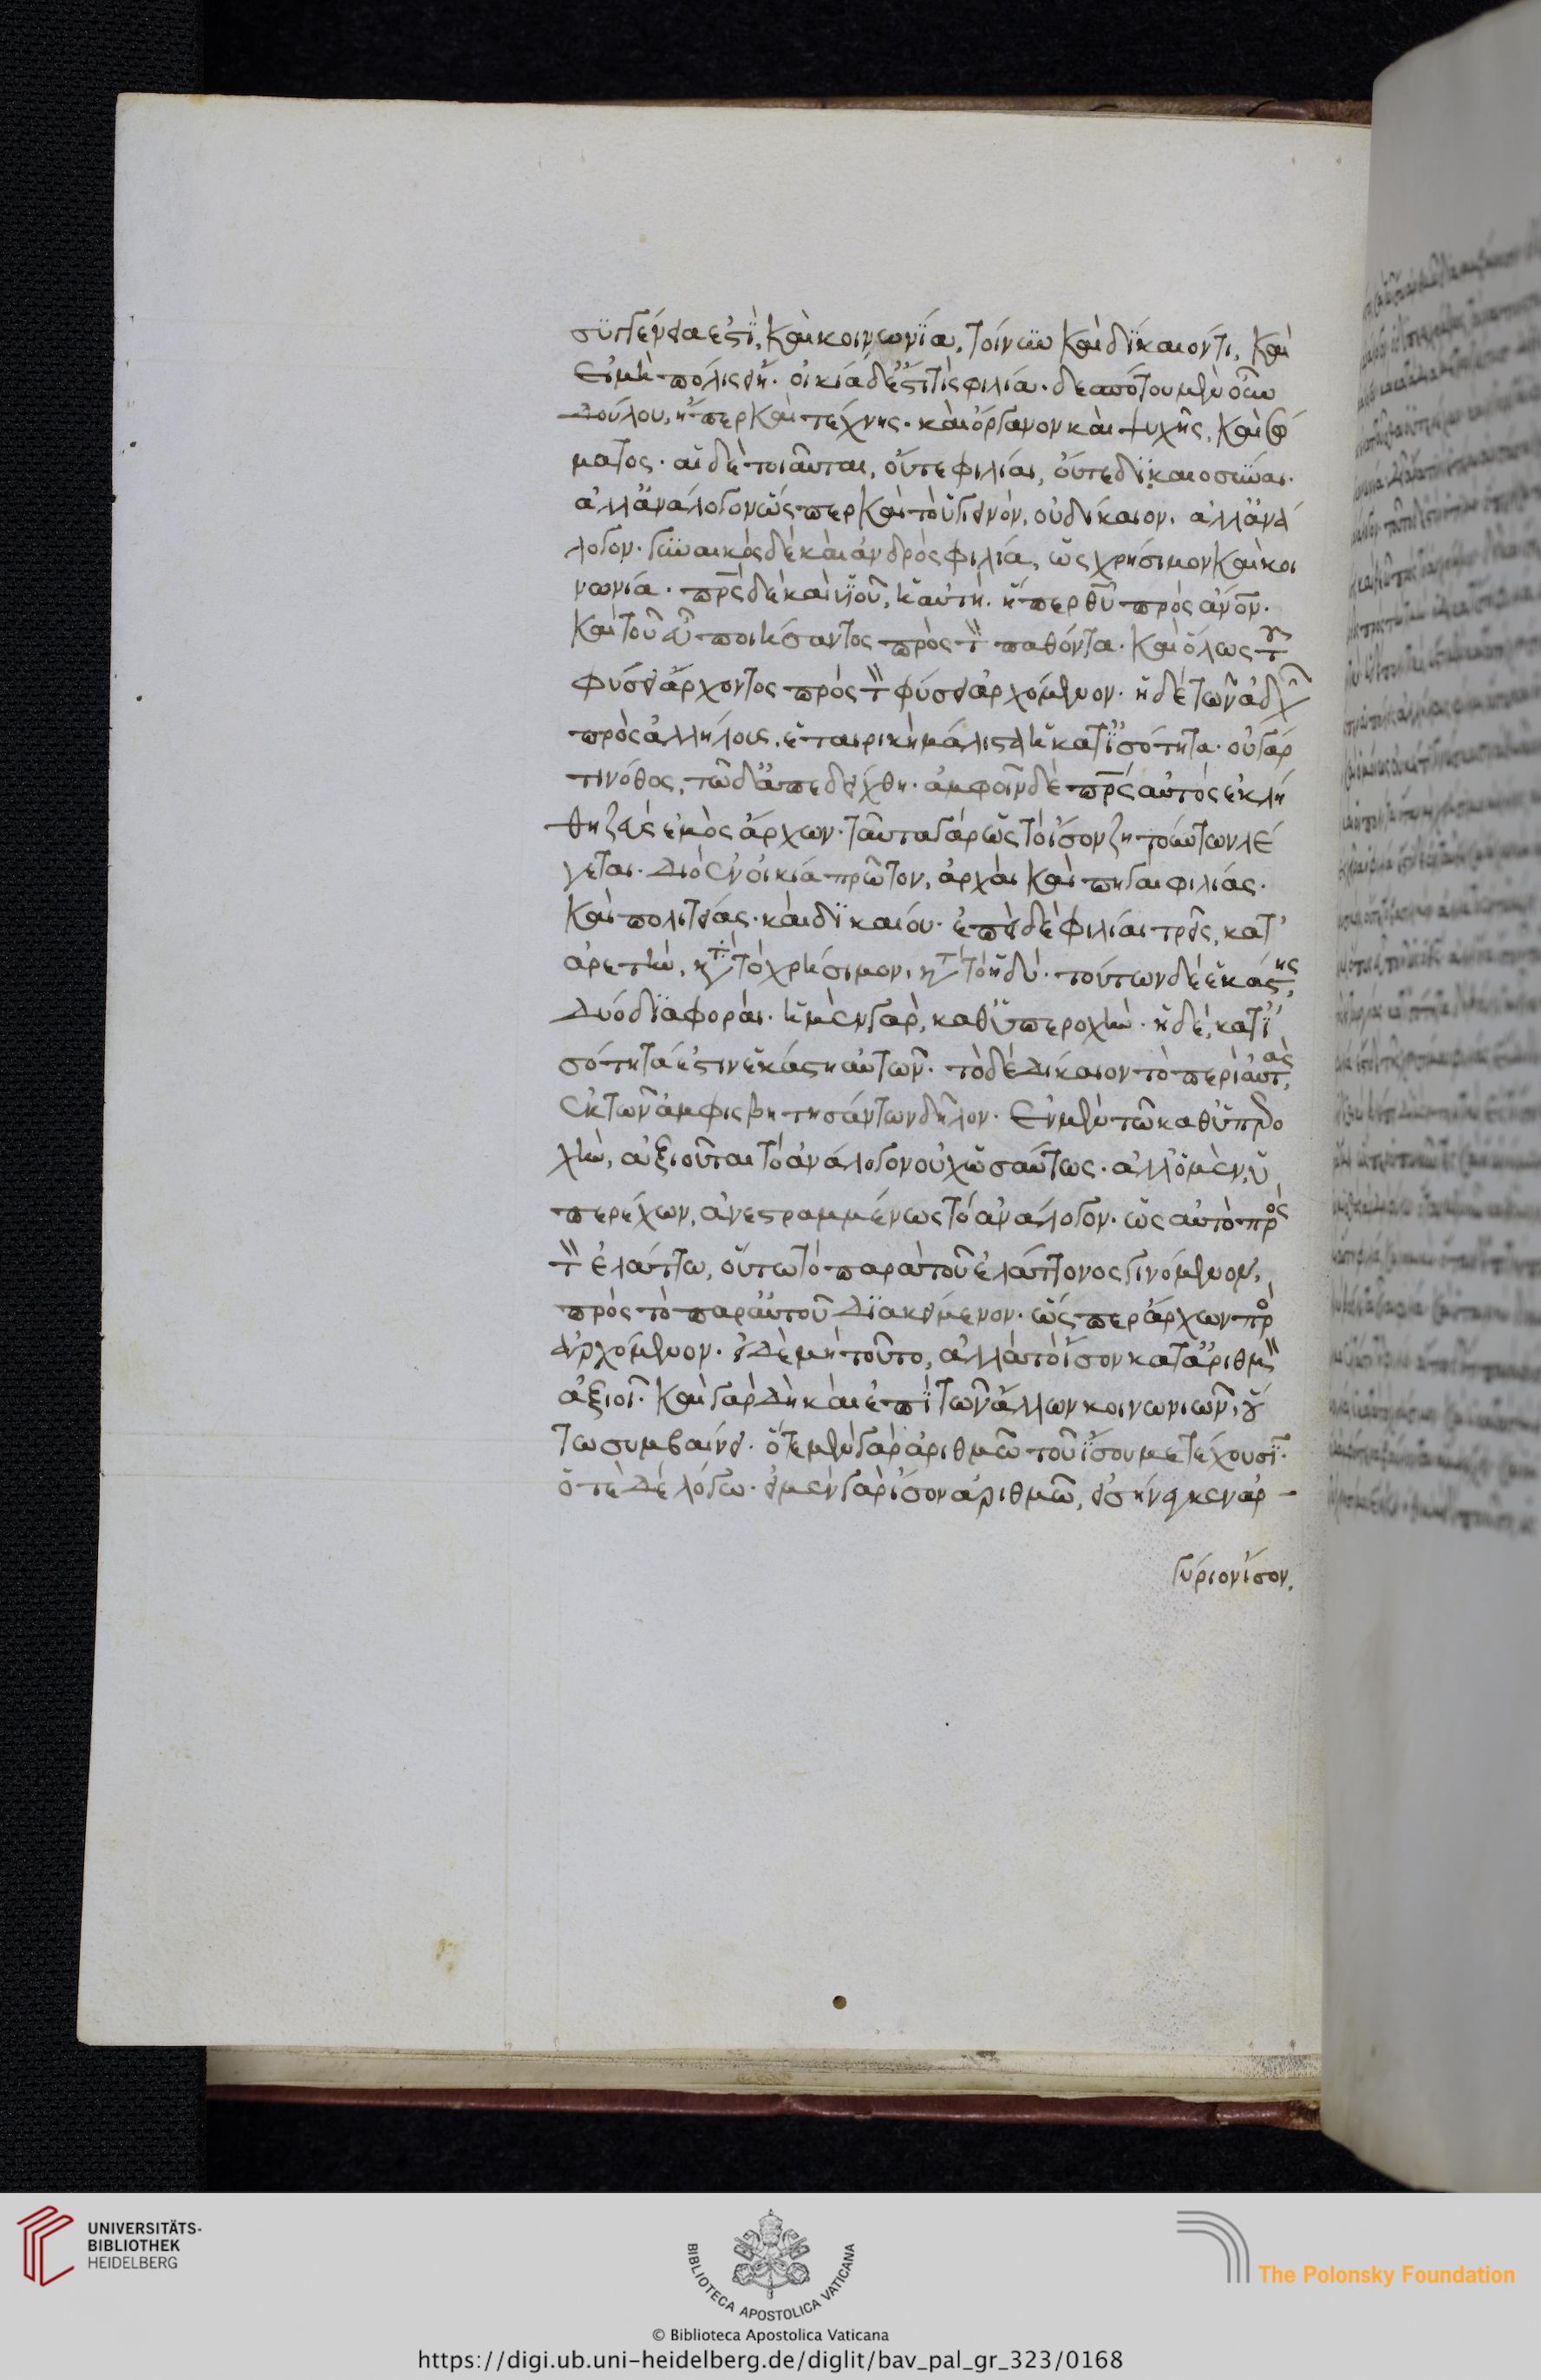 συγγένεια ἐστὶ, καὶ κοινωνία, τοίνυν καὶ δίκαιόν τι, καὶ
εἰ μὴ πόλις εἴη. οἰκία δ' ἔστί τις φιλία. δεσπότου μὲν οὖν
δούλου, ἥπερ καὶ τέχνης. καὶ ὄργανον καὶ ψυχῆς, καὶ σώ
ματος. αἱ δὲ τοιαῦται, οὔτε φιλίαι, οὔτε δικαιοσύναι.
ἀλλ' ἀνάλογον ὥσπερ καὶ τὸ ὑγιεινὸν, οὐ δίκαιον. ἀλλ' ἀνά
λογον. γυναικὸς δὲ καὶ ἀνδρὸς φιλία, ὡς χρήσιμον καὶ κοι
νωνία. πρς δὲ καὶ υἱοῦ, ἡ αὐτὴ. ἥπερ θυ πρὸς ἀνον.
καὶ τοῦ εὖ ποιήσαντος πρὸς τὸν παθόντα. καὶ ὅλως τοῦ
φύσει ἄρχοντος πρὸς τὸν φύσει ἀρχόμενον. ἡ δὲ τῶν ἀδελφῶν
πρὸς ἀλλήλους, ἑταιρικὴ μάλιστα ἡ κατ' ἰσότητα. οὐ γάρ
τι νόθος, τῶδ' ἀπεδείχθη. ἀμφοῖν δὲ πρς αὐτὸς ἐκλή
θη ζεὺς ἐμὸς ἄρχων. ταῦτα γὰρ ὡς τὸ ἴσον ζητούντων λέ
γεται. διὸ ἐν οἰκία πρῶτον, ἀρχαὶ καὶ πηγαὶ φιλίας.
καὶ πολιτείας. καὶ δικαίου. ἐπεὶ δὲ φιλίαι τρεῖς, κατ'
ἀρετὴν, κατὰ τὸ χρήσιμον, κατὰ τὸ ἡδύ. τούτων δὲ ἑκάστης,
δύο διαφοραί. ἡ μὲν γὰρ, καθ' ὑπεροχὴν. ἡ δὲ, κατ' ἰ
σότητά ἐστιν ἑκάστη αὐτῶν. τὸ δὲ δίκαιον τὸ περὶ αὐτὰς,
ἐκ τῶν ἀμφισβητησάντων δῆλον. ἐν μὲν τῶ καθ' ὑπερο
χὴν, ἀξιοῦται τὸ ἀνάλογον οὐχ ὡσαύτως. ἀλλ' ὁ μὲν, ὑ
περέχων, ἀνεστραμμένως τὸ ἀνάλογον. ὡς αὐτὸ πρὸς
τὸν ἐλάττω, οὕτω τὸ παρὰ τοῦ ἐλάττονος γινόμενον,
πρὸς τὸ παρ' αὐτοῦ διακείμενον. ὥσπερ ἄρχων πρὸς
ἀρχόμενον. εἰ δὲ μὴ τοῦτο, ἀλλὰ τὸ ἴσον κατ' ἀριθμὸν
ἀξιοῖ. καὶ γὰρ δὴ καὶ ἐπὶ τῶν ἄλλων κοινωνιῶν, οὕ
τω συμβαίνει. ὁτὲ μὲν γὰρ ἀριθμῶ τοῦ ἴσου μετέχουσι.
ὁτὲ δὲ λόγω. εἰ μὲν γὰρ ἴσον ἀριθμῶ, εἰσήνεγκεν ἀρ
γύριον ἴσον.
UNIVERSITÄTS-
BIBLIOTHEK
HEIDELBERG
BIBLIOTECA APOSTOLICA VATICANA
The Polonsky Foundation
© Biblioteca Apostolica Vaticana
https://digi.ub.uni-heidelberg.de/diglit/bav_pal_gr_323/0168